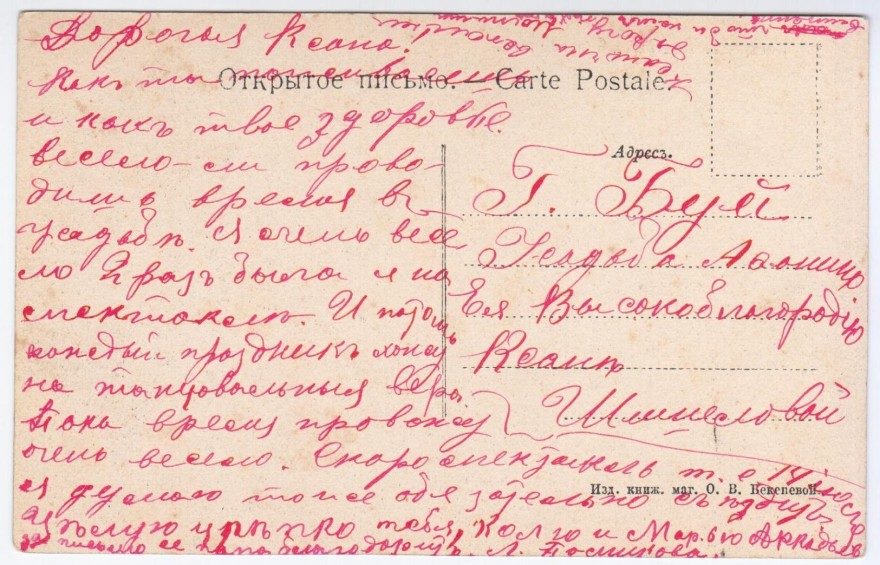 Дорогая Ксана!
Какъ ты поживаешь
и какъ твое здоровье.
весело-ли прово-
дишь время въ
усадьбѣ. Я очень весе
ло 2 раз ъ была я на
спектакле. И потомъ
каждый праздникъ хожу
на танцовальныя вечера
Пока время провожу
очень весело. Скоро спектакль т. е 14
я думаю тоже обязательно
Я цѣлую крѣпко тебя, Колю и Марью Аркадьев
за письмо ее благодарить. Л.
Открытое письмо. — Carte Postale.
Адресъ.
Г. Буй.
Усадьба
Ея Высокоблагородію
Ксанѣ
Изд. книж. маг. О. В. Бекеневой